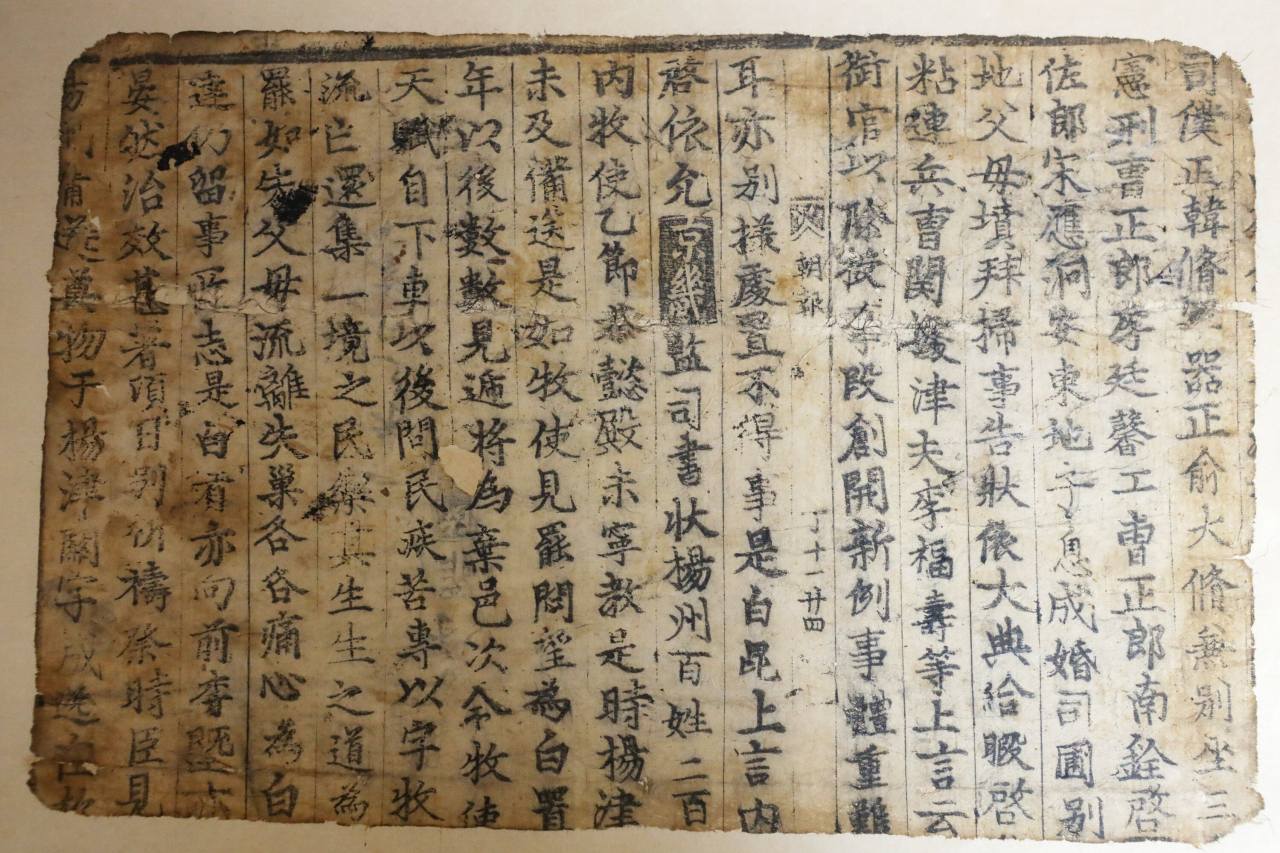 司僕正韓脩 器正俞大脩無別坐三
憲刑曹正郎李廷馨工曹正郎南銓啓
佐郎宋應泂安東地子息成婚司圃別
地父母墳拜掃事告狀依大典給暇啓
粘連兵曹関據津夫李福壽等上言云
衙官以除役李段創開新例事體重難
朝報 丁十一廿四
耳亦別樣處置不得事是白昆上言內
啓依允京畿監司書狀楊州百姓二百
內牧使乙節恭懿殿未寧教是時楊津
未及備送是如牧使見罷悶望為白置
年以後數數見遞將為棄邑次今牧使
天賦自下車以後問民疾苦專以字牧
流亡還集一境之民樂其生生之道為
罷如失父母流離失巢各各痛心為白
達仍留事所志是白有亦向前李墍亦
晏然治效甚著頃日別祈禱祭時臣見
奠物于楊津關字成送